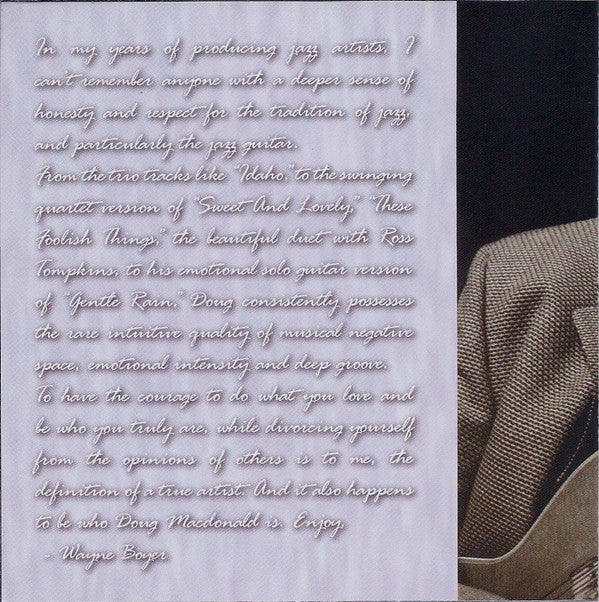 In my years of producing jazz artists, I
can't remember anyone with a deeper sense of
honesty and respect for the tradition of jazz,
and particularly the jazz guitar.
From the trio tracks like "Idaho," to the swinging
quartet version of "Sweet And Lovely," "These
Foolish Things," the beautiful duet with Ross
Tompkins, to his emotional solo guitar version
of "Gentle Rain," Doug consistently possesses
the rare intuitive quality of musical negative
space, emotional intensity and deep groove.
To have the courage to do what you love and
be who you truly are, while divorcing yourself
from the opinions of others is to me, the
definition of a true artist. And it also happens
to be who Doug Macdonald is. Enjoy,
- Wayne Boyer